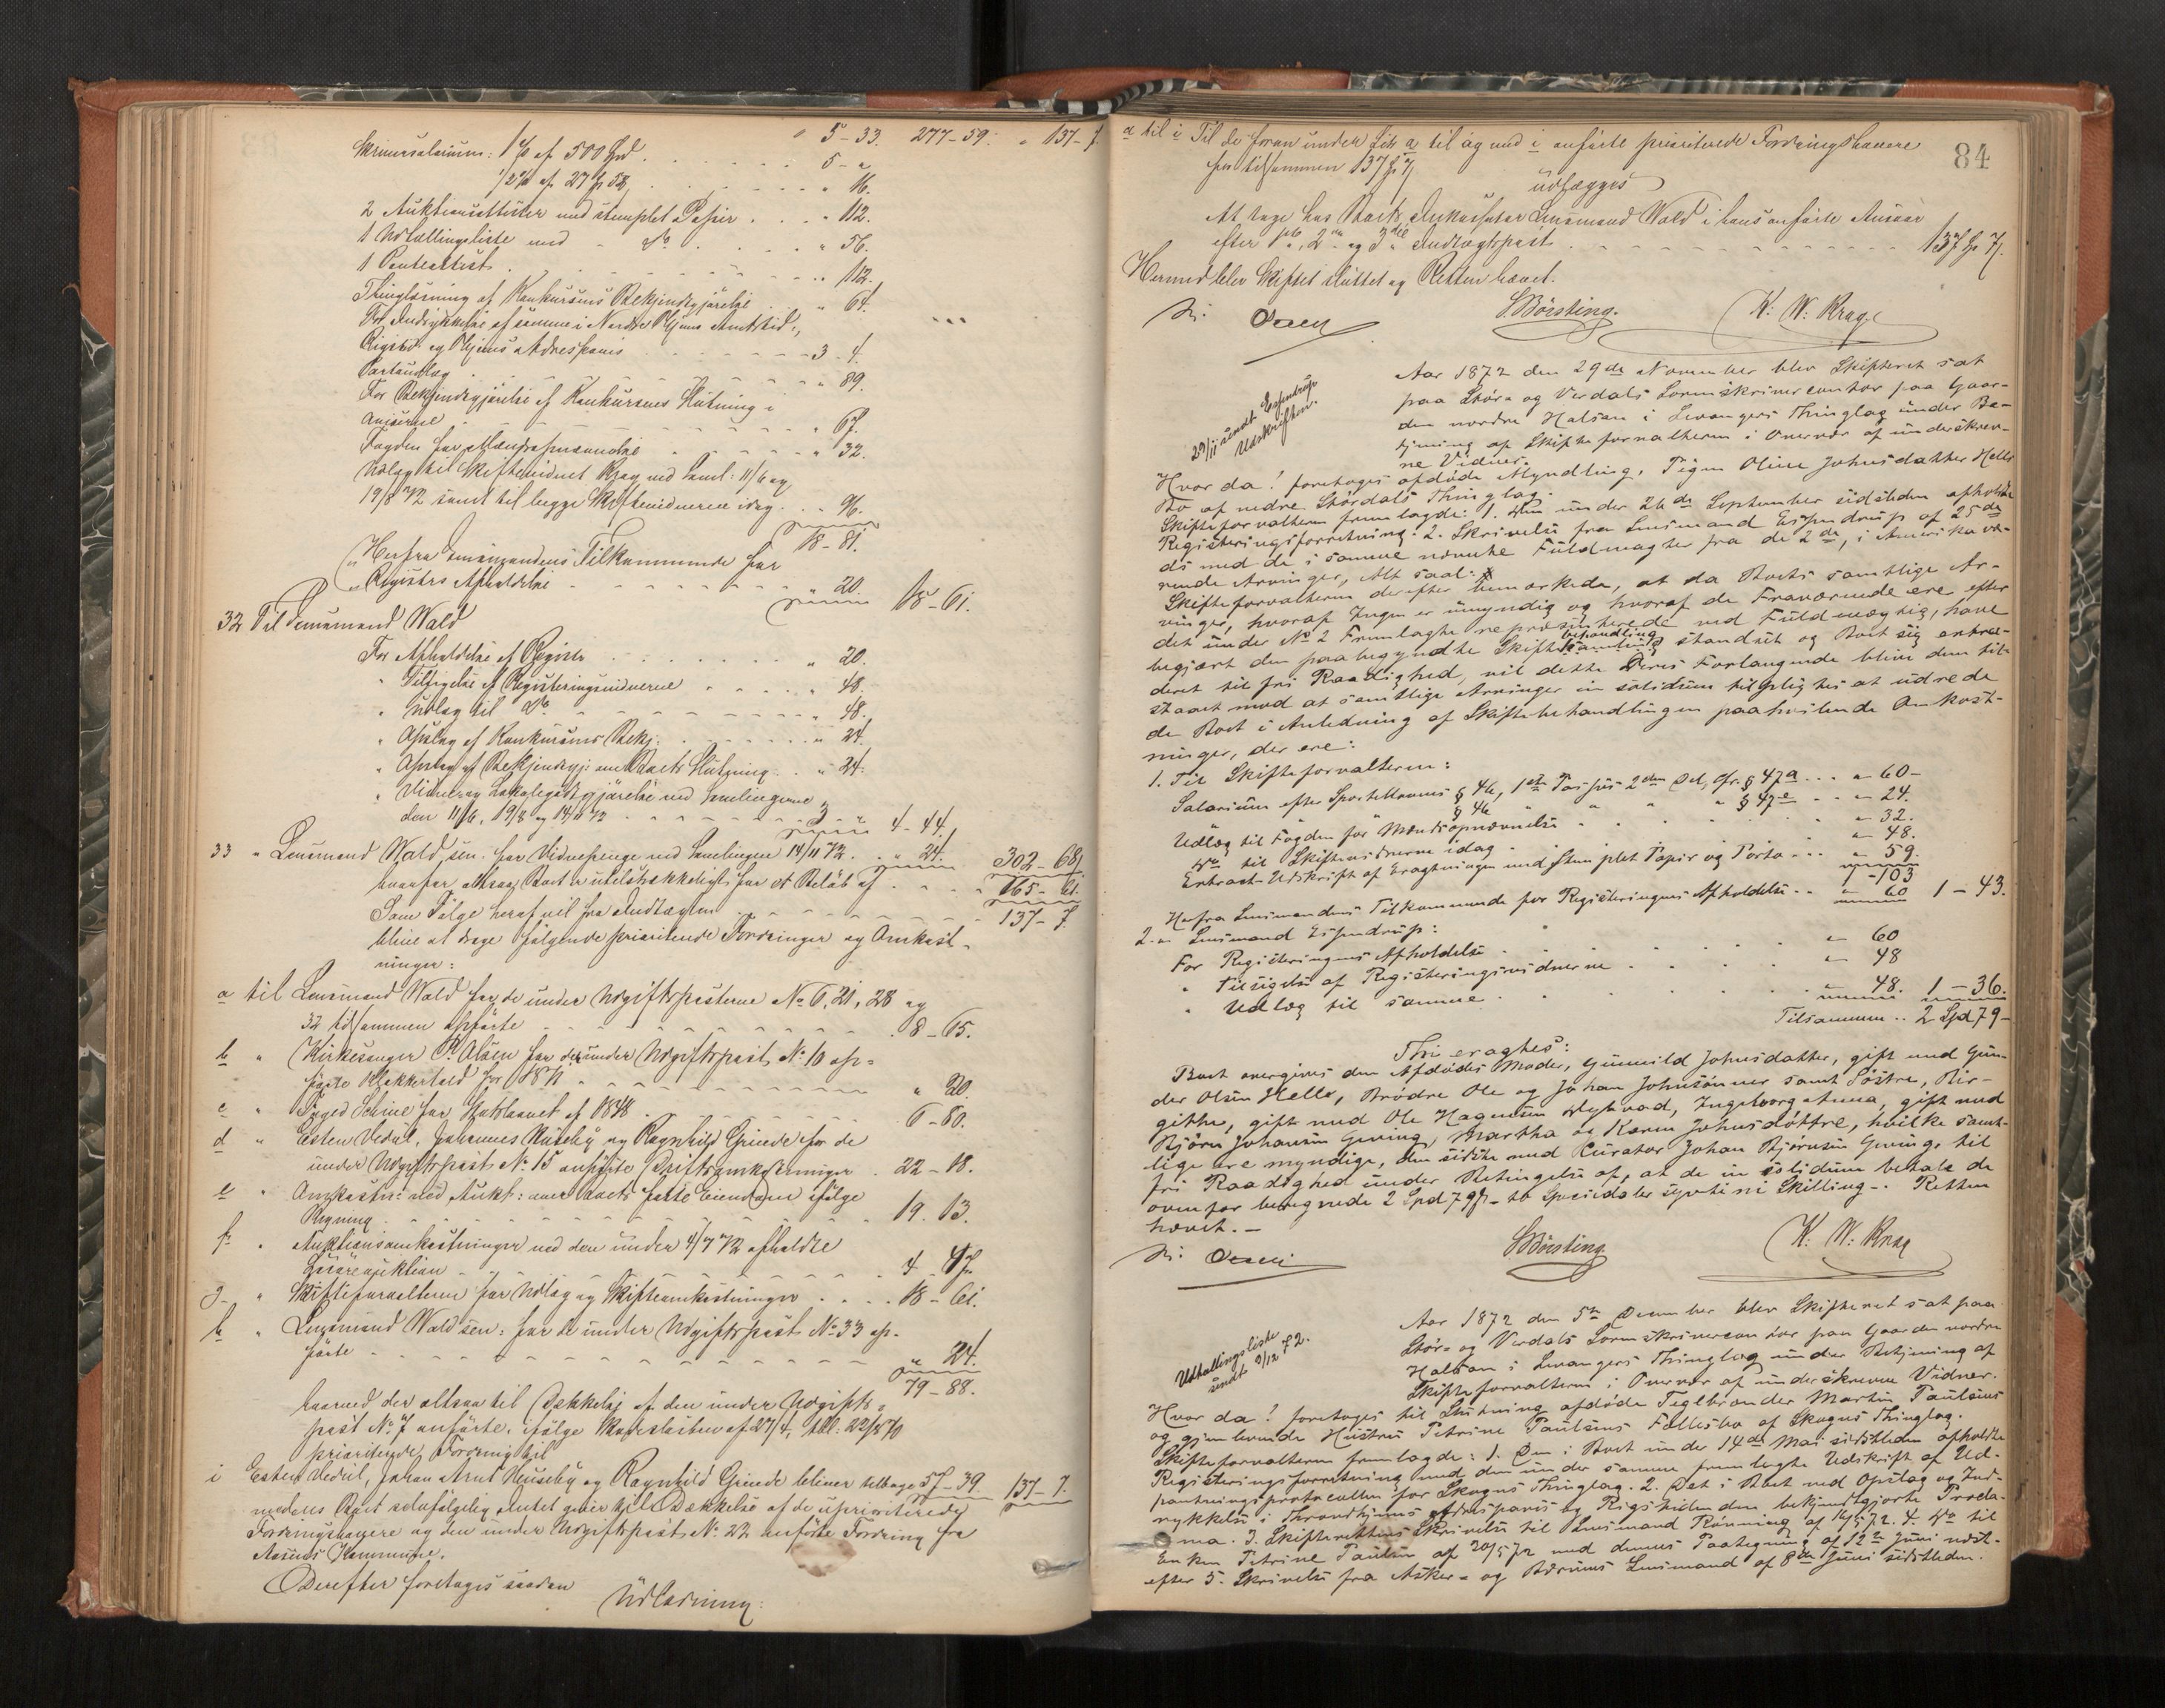 " 5-33. 277-59. " 137-7.
Skriversalarium: 1 % af 500 Spd. 5 - "
1/2 % af 27 58 " 16.
2 Auktionsattester med stemplet Papir " 112.
1 Udlællingsliste med " do " 56.
1 Panteattest " 112.
Thinglæsning af Konkursens Bekjendtgjørelse " 64.
For Indrykkelse af samme i Nordre Thjems Amtstid.,
Rigstid. og Thjems Adressavis 3-4.
Portoudlæg " 89.
For Bekjendtgjørelse af Konkursens Slutning i
Aviserne " 67.
Fogden for Mændsopnævnelse " 32.
Udlæg til Skiftevidnet Krag ved Saml: 11/6 og
19/8 72 samt til begge Skiftevidnerne idag " 96.
18-81.
Herfra Lensmandens Tilkommende for
Registrs Afholdelse " 20.
18-61.
32 Til Lensmand Wald
For Afholdelse af Registr " 20.
" Tilsigelse af Registeringsvidnerne " 48.
" Udlæg til do " 48.
" Opslag af Konkursens Bekj: " 24.
" Opslag af Bekjendtgj: om Boets Slutning " 24.
" Vidne og Lokalegodtgjørelse ved Samlingerne
den 11/6, 19/8 og 14/11 72 3 " 4-44.
33 " Lensmand Wald sen. for Vidnepenge ved Samlingen 14/11 72 " 24.
302-68
hvorfor altsaa Boet er utilstrækkeligt for et Beløb af 165-61.
Som Følge heraf vil fra Indtægten 137-7.
blive at drage følgende prioriterede Fordringer og Omkost-
ninger:
a til Lensmand Wald for de under Udgiftsposterne No 6, 21, 28 og
32 tilsammen opførte 8-65.
b " Kirkesanger P. Olsen for den under Udgiftspost No 10 op-
førte Klokkertold for 1871 " 20.
c " Foged Schive for Skatelaanet af 1848 6-80.
d " Esten Vedul, Johannes Huseby og Ragnhild Grinde for de
under Udgiftspost No 15 anførte Driftsomkostninger 22-18.
e " Omkostn: ved Aukt: over Boets faste Eiendom ifølge
Regning 19. 13.
f " Auktionsomkostninger ved den under 4/7 72 afholdte
Løsøreauktion 4-47
g " Skifteforvalteren for Udlæg og Skifteomkostninger 18-61.
h " Lensmand Wald sen: for de under Udgiftspost No 33 op-
førte " 24.
79-88.
hvorved der altsaa til Dækkelse af den under Udgifts-
post No 7 anførte, ifølge Skadesløsbrev af 27/4, thl: 22/8 70
prioriterede Fordring til
i Esten Vedul, Johan Arnt Huseby og Ragnhild Grinde bliver tilbage 57-39. 137-7.
medens Boet selvfølgelig Intet giver til Dækkelse af de uprioriterede
Fordringshavere og den under Udgiftspost No 22 anførte Fordring fra
Aasens Kommune.
Derefter foretoges saadan
Udlodning:
84
a til i Til de foran under Litr a til og med i anførte prioriterede Fordringshavere
for tilsammen 137 7
udlægges
At tage hos Boets Inkassator Lensmand Wald i hans anførte Ansvar
efter 1ste, 2den og 3die Indtægtspost 137 7.
Hermed blev Skiftet sluttet og Retten hævet.
S. Børsting. K. W. Krag
29/11 sendt Espendrup
Udskriften.
Aar 1872 den 29de November blev Skifteret sat
paa Stør- og Verdals Sorenskrivercontor paa Gaar-
den nordre Halsan i Levangers Thinglag under Be-
tjening af Skifteforvalteren i Overvær af underskrev-
ne Vidner.
Hvor da! foretoges afdøde Myndling, Pigen Oline Johnsdatter Hells
Bo af nedre Størdals Thinglag.
Skifteforvalteren fremlagde: 1. Den under 26de September sidstleden afholdte
Registeringsforretning. 2. Skrivelse fra Lensmand Espendrup af 25de
ds med de i samme nævnte Fuldmagter fra de 2de, i Amerika væ-
rende Arvinger, Alt saal:
Skifteforvalteren derefter bemærkede, at da Boets samtlige Ar-
vinger, hvoraf Ingen er umyndig og hvoraf de Fraværende ere efter
det under No 2 Fremlagte repræsenterede ved Fuldmægtig, have
begjært den paabegyndte Skiftebehandling standset og Boet sig extra-
deret til fri Raadighed, vil dette Deres Forlangende blive dem til-
staaet mod at samtlige Arvinger in solidum tilpligtes at udrede
de Boet i Anledning af Skiftebehandlingen paahvilende Omkost-
ninger, der ere:
1. Til Skifteforvalteren:
Salarium efter Sportellovens § 46, 1ste Passus 2den Del, cfr. § 47a " 60-
§ 46 " " " § 47e " 24.
Udlæg til Fogden for Mændsopnævnelse " 32.
do til Skiftevidnerne idag " 48.
Extract-Udskrift af Eragtningen med Stemplet Papir og Porto " 59.
1-103
Herfra Lensmandens Tilkommende for Registeringens Afholdelse " 60 1-43.
2. " Lensmand Espendrup:
For Registeringens Afholdelse " 60
" Tilsigelse af Registeringsvidnerne " 48
" Udlæg til samme " 48. 1-36.
Tilsammen 2 Spd 79-
Thi eragtes:
Boet overgives den Afdødes Moder, Gunnild Johnsdatter, gift med Gun-
der Olsen Hells, Brødre Ole og Johan Johnsønner samt Søstre, Bir-
githe, gift med Ole Hagensen Nykvad, Ingeborganna, gift med
Bjørn Johansen Gwing, Martha og Karen Johnsdøttre, hvilke samt-
lige ere myndige, den sidste med Curator Johan Bjørnsen Gwing, til
fri Raadighed under Betingelse af, at de in solidum betale de
ovenfor beregnede 2 Spd 79 - to Speciedaler syvti ni Skilling-. Retten
hævet.-
S. Børsting K. W. Krag
Udlodningsliste
sendt 9/12 72.
Aar 1872 den 5te December blev Skifteret sat paa
Stør- og Verdals Sorenskrivercontor paa Gaarden nordre
Halsan i Levangers Thinglag under Betjening af
Skifteforvalteren i Overvær af underskrevne Vidner.
Hvor da! foretoges til Slutning afdøde Teglbrænder Martin Paulsens
og gjenlevende Hustru Petrine Paulsens Fællesbo af Skogns Thinglag.
Skifteforvalteren fremlagde: 1. Den i Boet under 14de Mai sidstleden afholdte
Registeringsforretning med den under samme fremlagte Udskrift af Ud-
pantningsprotocollen for Skogns Thinglag. 2. Det i Boet ved Opslag og Ind-
rykkelse i Throndhjems Adresseavis og Rigstidenden bekjendtgjorte Procla-
ma. 3. Skifterettens Skrivelse til Lensmand Rønning af 14/5 72. 4. do til
Enken Petrine Paulsen af 20/5 72 med dennes Paategning af 12te Juni næst-
efter 5. Skrivelse fra Asker- og Bærums Lensmand af 8de Juni sidstleden.